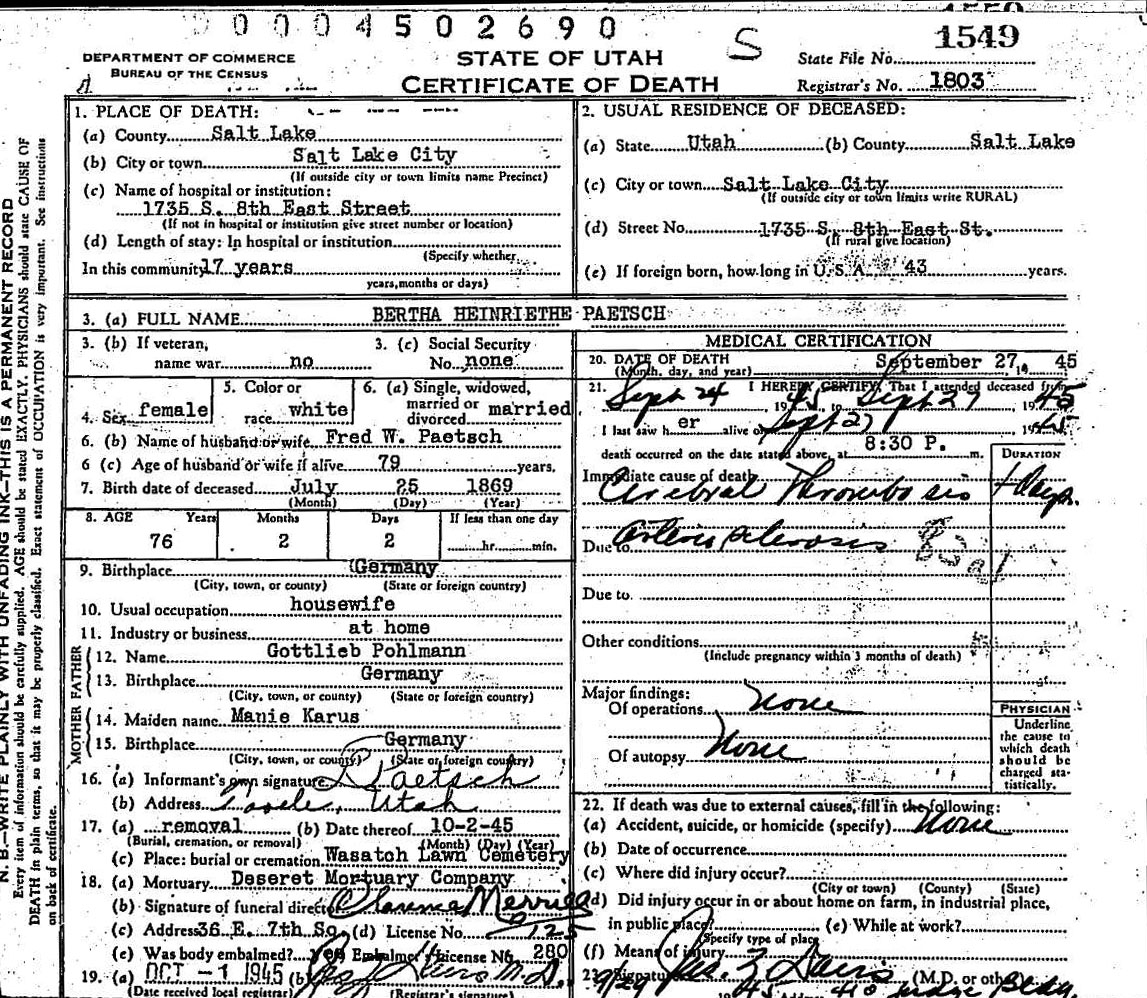 0004502690
1549
DEPARTMENT OF COMMERCE
BUREAU OF THE CENSUS
STATE OF UTAH
CERTIFICATE OF DEATH
S
State File No.
Registrar's No. 1803
N. B.—WRITE PLAINLY WITH UNFADING INK—THIS IS A PERMANENT RECORD
Every item of information should be carefully supplied. AGE should be stated EXACTLY. PHYSICIANS should state CAUSE OF
DEATH in plain terms, so that it may be properly classified. Exact statement of OCCUPATION is very important. See instructions
on back of certificate.
1. PLACE OF DEATH:
(a) County Salt Lake
(b) City or town Salt Lake City
(If outside city or town limits name Precinct)
(c) Name of hospital or institution:
1735 S. 8th East Street
(If not in hospital or institution give street number or location)
(d) Length of stay: In hospital or institution
(Specify whether
In this community 17 years
years, months or days)
2. USUAL RESIDENCE OF DECEASED:
(a) State Utah (b) County Salt Lake
(c) City or town Salt Lake City
(If outside city or town limits write RURAL)
(d) Street No. 1735 S. 8th East St.
(If rural give location)
(e) If foreign born, how long in U.S.A. 43 years.
3. (a) FULL NAME BERTHA HEINRIETHE PAETSCH
3. (b) If veteran,
name war no
3. (c) Social Security
No. none
4. Sex female
5. Color or
race white
6. (a) Single, widowed,
married or
divorced married
6. (b) Name of husband or wife Fred W. Paetsch
6 (c) Age of husband or wife if alive 79 years.
7. Birth date of deceased July 25 1869
(Month) (Day) (Year)
8. AGE Years Months Days If less than one day
76 2 2 hr. min.
9. Birthplace Germany
(City, town, or county) (State or foreign country)
10. Usual occupation housewife
11. Industry or business at home
FATHER
12. Name Gottlieb Pohlmann
13. Birthplace Germany
(City, town, or county) (State or foreign country)
MOTHER
14. Maiden name Manie Karus
15. Birthplace Germany
(City, town, or county) (State or foreign country)
16. (a) Informant's own signature Paetsch
(b) Address Tooele, Utah
17. (a) removal (b) Date thereof 10-2-45
(Burial, cremation, or removal) (Month) (Day) (Year)
(c) Place: burial or cremation Wasatch Lawn Cemetery
18. (a) Mortuary Deseret Mortuary Company
(b) Signature of funeral director Clarence Merrill
(c) Address 36 E. 7th So. (d) License No. 125
(e) Was body embalmed? yes Embalmer's License No. 280
19. (a) OCT -1 1945 (b) Davis M.D.
(Date received local registrar) (Registrar's signature)
MEDICAL CERTIFICATION
20. DATE OF DEATH September 27, 19 45
(Month, day, and year)
21. I HEREBY CERTIFY, That I attended deceased from
Sept 24 1945, to Sept 27 1945
I last saw her alive on Sept 27 1945
death occurred on the date stated above, at 8:30 P. m.
DURATION
Immediate cause of death
Cerebral Thrombosis days
Due to Arteriosclerosis
Due to
Other conditions
(Include pregnancy within 3 months of death)
Major findings:
Of operations None
Of autopsy None
PHYSICIAN
Underline
the cause to
which death
should be
charged sta-
tistically.
22. If death was due to external causes, fill in the following:
(a) Accident, suicide, or homicide (specify) None
(b) Date of occurrence
(c) Where did injury occur?
(City or town) (County) (State)
(d) Did injury occur in or about home on farm, in industrial place,
in public place? (e) While at work?
(Specify type of place)
(f) Means of injury
23. Signature Davis (M.D. or other)
9/29 1945 Address 410 Judge Bldg.